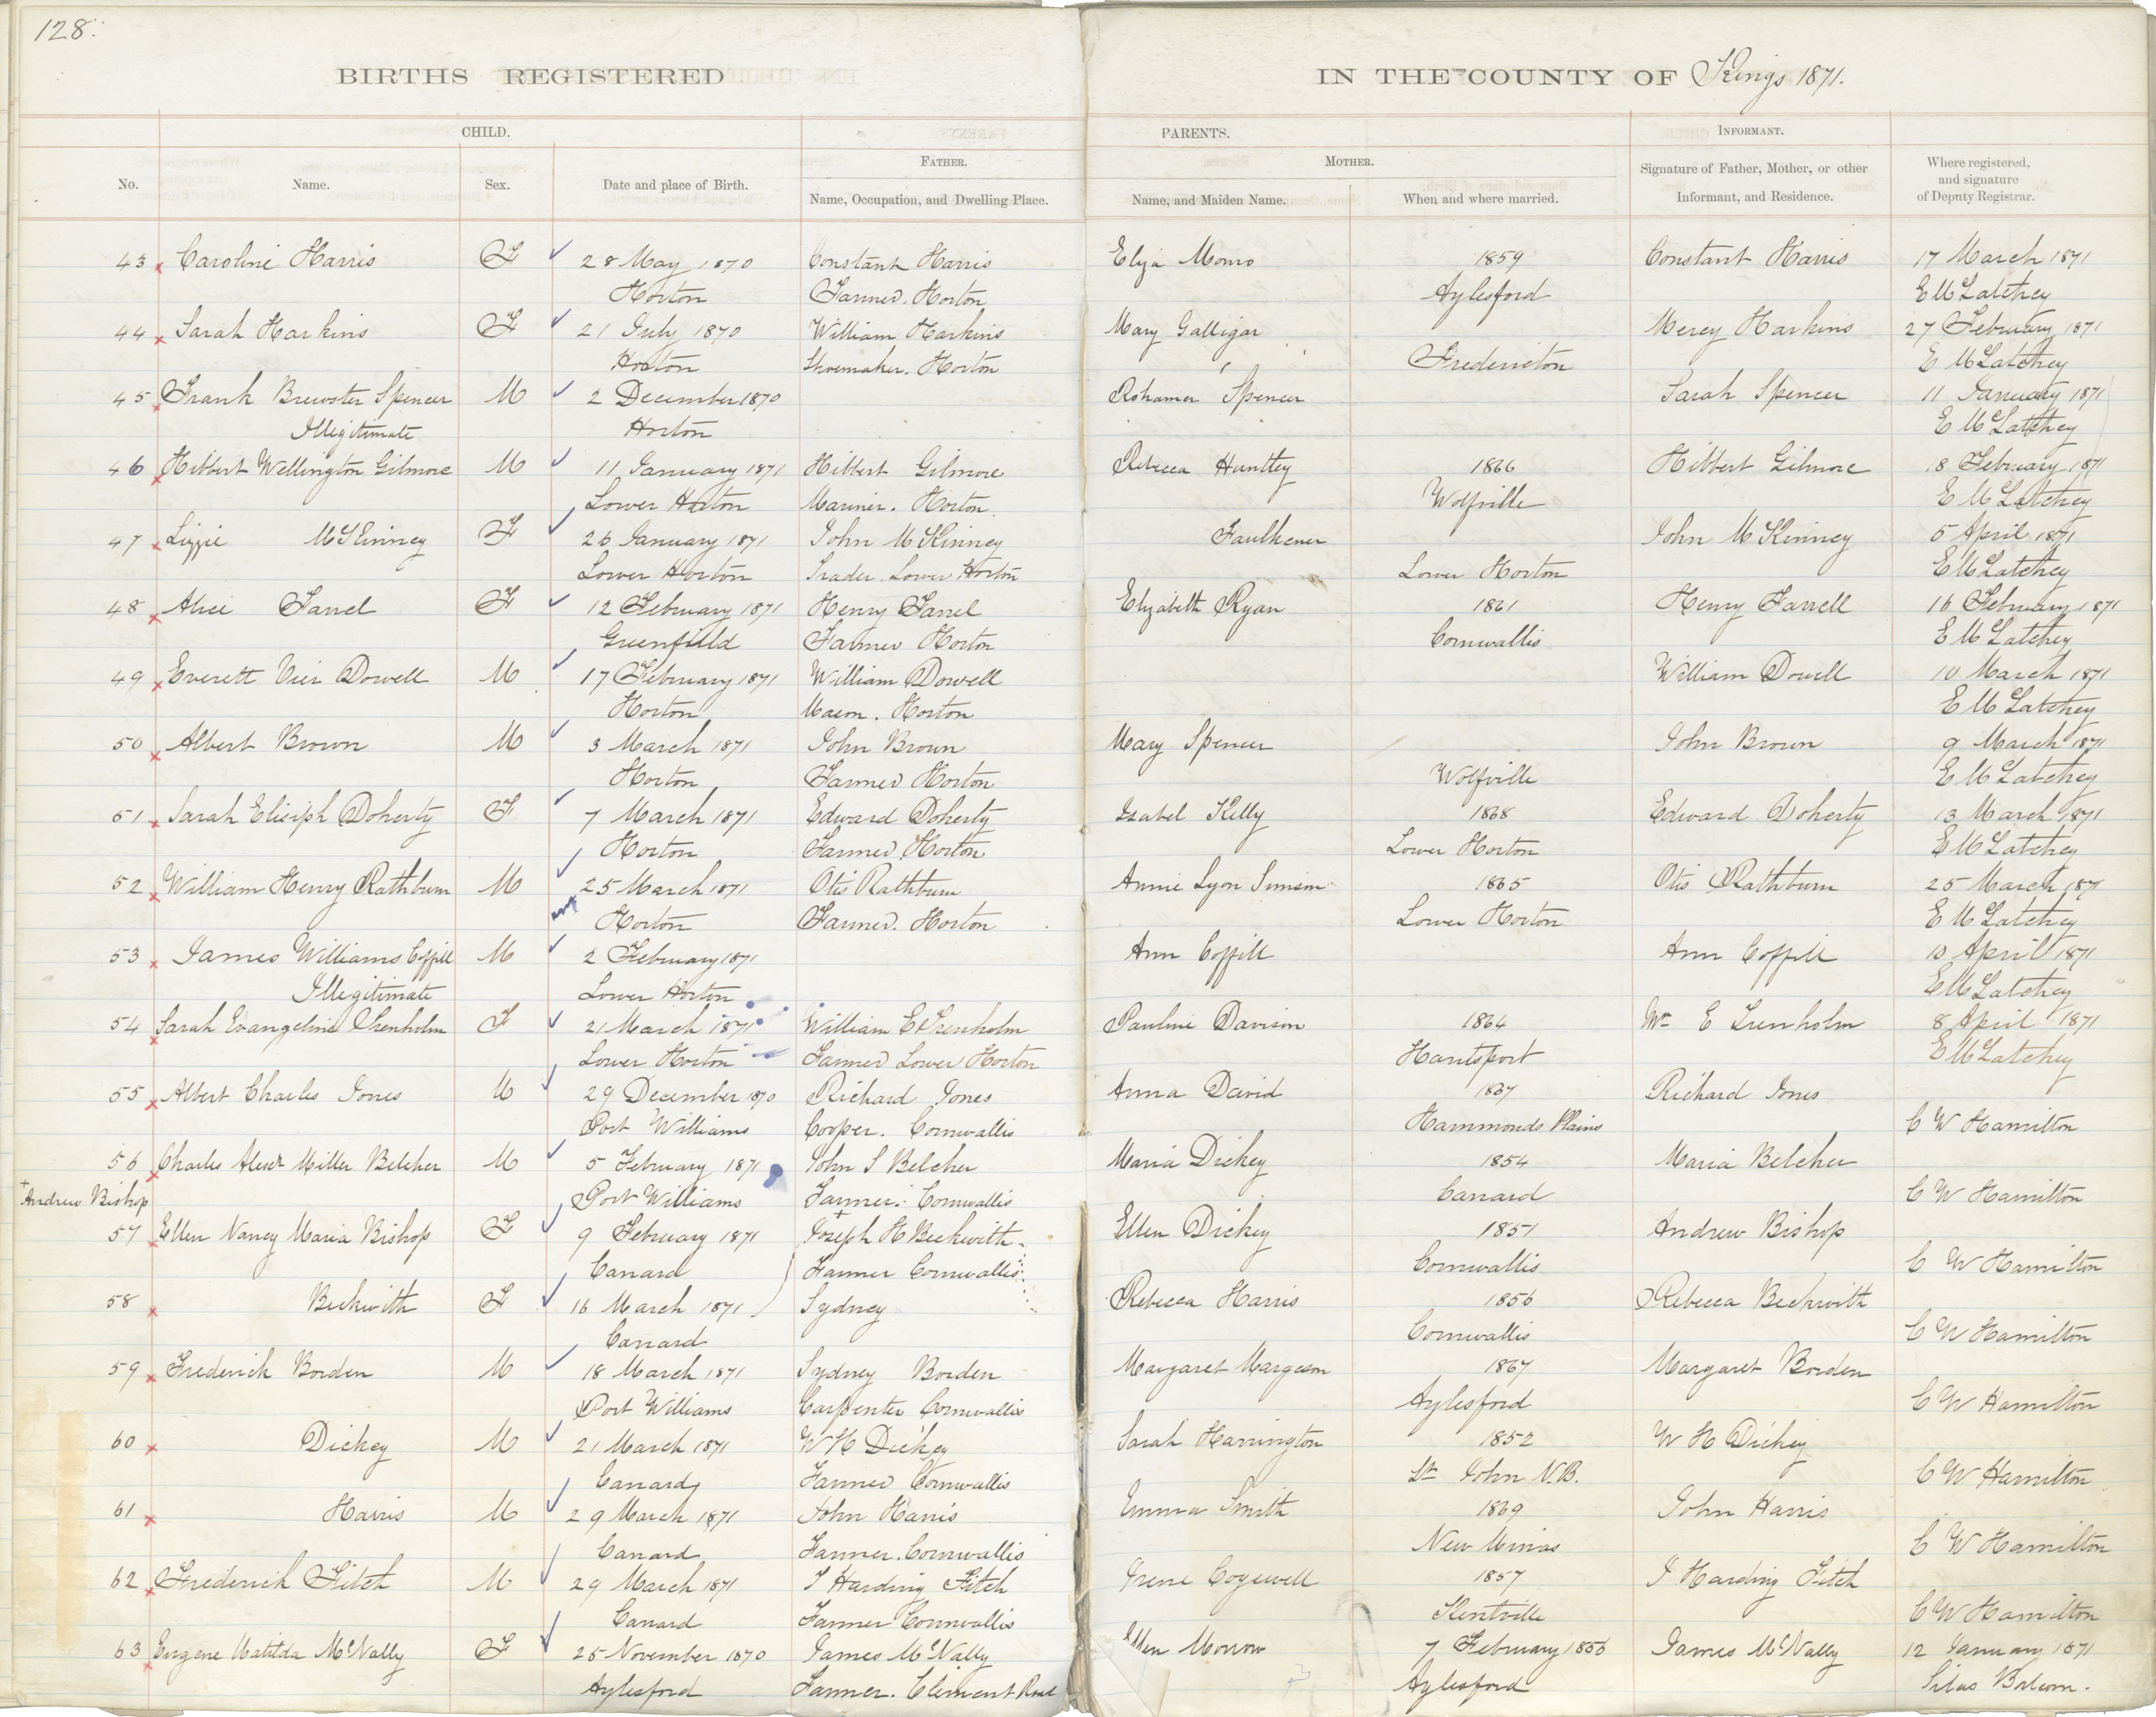 128.
BIRTHS REGISTERED IN THE COUNTY OF Kings 1871.
CHILD. PARENTS. INFORMANT.
FATHER. MOTHER.
No. Name. Sex. Date and place of Birth. Name, Occupation, and Dwelling Place. Name, and Maiden Name. When and where married. Signature of Father, Mother, or other Informant, and Residence. Where registered, and signature of Deputy Registrar.
43 Caroline Harris F 28 May 1870 Constant Harris Eliza Monro 1859 Constant Harris 17 March 1871
Horton Farmer. Horton Aylesford E McLatchey
44 Sarah Harkins F 21 July 1870 William Harkins Mary Galligar Mercy Harkins 27 February 1871
Horton Shoemaker. Horton Fredericton E McLatchey
45 Frank Brewster Spencer M 2 December 1870 Rohamer Spencer Sarah Spencer 11 January 1871
Illegitimate Horton E McLatchey
46 Hibbert Wellington Gilmore M 11 January 1871 Hibbert Gilmore Rebecca Huntley 1866 Hibbert Gilmore 18 February 1871
Lower Horton Mariner. Horton Wolfville E McLatchey
47 Lizzie McKinney F 26 January 1871 John McKinney Faulkener John McKinney 5 April 1871
Lower Horton Trader Lower Horton Lower Horton E McLatchey
48 Alice Farrel F 12 February 1871 Henry Farrel Elizabeth Ryan 1861 Henry Farrell 16 February 1871
Greenfield Farmer Horton Cornwallis E McLatchey
49 Everett Vier Dowell M 17 February 1871 William Dowell William Dowell 10 March 1871
Horton Mason. Horton E McLatchey
50 Albert Brown M 3 March 1871 John Brown Mary Spencer John Brown 9 March 1871
Horton Farmer Horton Wolfville E McLatchey
51 Sarah Doherty F 7 March 1871 Edward Doherty Isabel Kelly 1868 Edward Doherty 13 March 1871
Horton Farmer Horton Lower Horton E McLatchey
52 William Henry Rathburn M 25 March 1871 Otis Rathburn Annie Lyon 1865 Otis Rathburn 25 March 1871
Horton Farmer. Horton Lower Horton E McLatchey
53 James Williams Coffill M 2 February 1871 Ann Coffill Ann Coffill 10 April 1871
Illegitimate Lower Horton E McLatchey
54 Sarah Evangeline Trenholm F 21 March 1871 William E Trenholm Pauline Davison 1864 Wm E Trenholm 8 April 1871
Lower Horton Farmer Lower Horton Hantsport E McLatchey
55 Albert Charles Jones M 29 December 1870 Richard Jones Anna David 1867 Richard Jones
Port Williams Cooper. Cornwallis Hammonds Plains C W Hamilton
56 Charles Alexr Miller Belcher M 5 February 1871 John S Belcher Maria Dickey 1854 Maria Belcher
+Andrew Bishop Port Williams Farmer. Cornwallis Canard C W Hamilton
57 Ellen Nancy Maria Bishop F 9 February 1871 +Joseph H Beckwith Ellen Dickey 1851 Andrew Bishop
Canard Farmer Cornwallis Cornwallis C W Hamilton
58 Beckwith F 16 March 1871 Sydney Rebecca Harris 1856 Rebecca Beckwith
Canard Cornwallis C W Hamilton
59 Frederick Borden M 18 March 1871 Sydney Borden Margaret Margeson 1867 Margaret Borden
Port Williams Carpenter Cornwallis Aylesford C W Hamilton
60 Dickey M 21 March 1871 W H Dickey Sarah Harrington 1852 W H Dickey
Canard Farmer Cornwallis St John N.B. C W Hamilton
61 Harris M 29 March 1871 John Harris Emma Smith 1869 John Harris
Canard Farmer. Cornwallis New Minas C W Hamilton
62 Frederick Fitch M 29 March 1871 J Harding Fitch Irene Cogswell 1857 J Harding Fitch
Canard Farmer Cornwallis Kentville C W Hamilton
63 Eugene Matilda McNally F 25 November 1870 James McNally Ellen Morrow 7 February 1856 James McNally 12 January 1871
Aylesford Farmer. Clement Road Aylesford Silas Balcom.